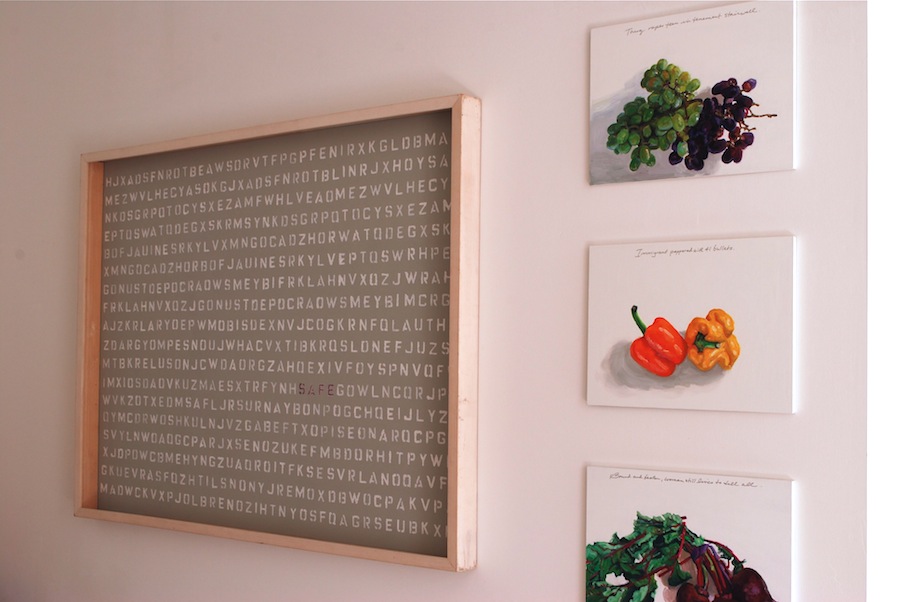 HJXAOSFNROTBEAWSDRVTFPGPFENIRXKGLDBMA
MEZWVLHECYASOKGJXAOSFNROTBLINRJXHOYSA
NKOSGRPOTOCYSXEZAMFWHLVEAOMEZWVLHECY
EPTOSWATODEGXSKRMSYNKOSGRPOTOCYSXEZAM
BOFJAUINESRKYLVXMNGOCAOZHORWATODEGXSK
XMNGOCAOZHORBOFJAUINESRKYLVEPTOSWRHPE
GONUSTOEPOCRAOWSMEYBIFRKLAHNVXOZJWRAH
FRKLAHNVXOZJGONUSTOEPOCRAOWSMEYBIMCRG
AJZKRLARYOEPWMOBISDEXNVJCOGKRNFOLAUTH
ZOARGYOMPESNOUJWHACVXTIBKROSLONEFJUZS
MTBKRELUSONJCWOAORGZAHOEXIVFOYSPNVOF
IMXIOSOAOVKUZMAESXTRFYNHSAFEGOWLNCORJP
WVKZOTXEOMSAFLJRSURNAYBONPOGCHOEIJLYZ
OYMCORWOSHKULNJVZGABEFTXOPISEONAROCPG
SVYLNWOAOGCPARJXSENOZUKEFMBOORHITPYW
XJOPOWCBMEHYNGZUAOROITFKSESVRLANOOAVF
GKUEVRASFOZHTILSNONYJREMOXOBWOCPAKVP
MAOWCKVXPJOLBRENOZIHTNYOSFOAGRSEUBKX
Thug rapes teen in tenement stairwell.
Immigrant peppered with 41 bullets.
Bound and beaten, woman still tries to tell all.